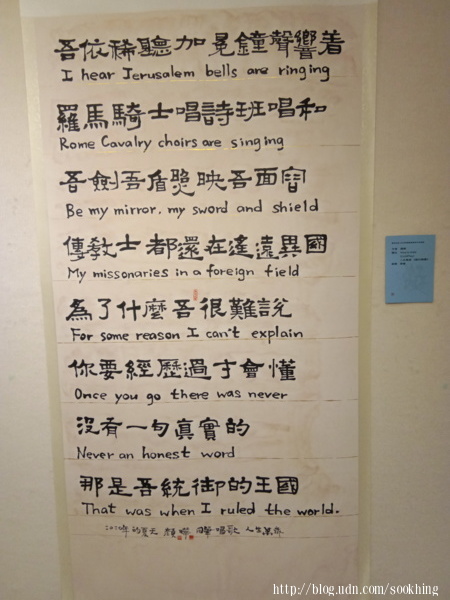 吾依稀聽加冕鐘聲響着
I hear Jerusalem bells are ringing
羅馬騎士唱詩班唱和
Rome Cavalry choirs are singing
吾劍吾盾照映吾面容
Be my mirror, my sword and shield
傳教士都還在遙遠異國
My missonaries in a foreign field
為了什麼吾很難說
For some reason I can't explain
你要經歷過才會懂
Once you go there was never
沒有一句真實的
Never an honest word
那是吾統御的王國
That was when I ruled the world.
的夏天 唱歌
http://blog.udn.com/sookhing